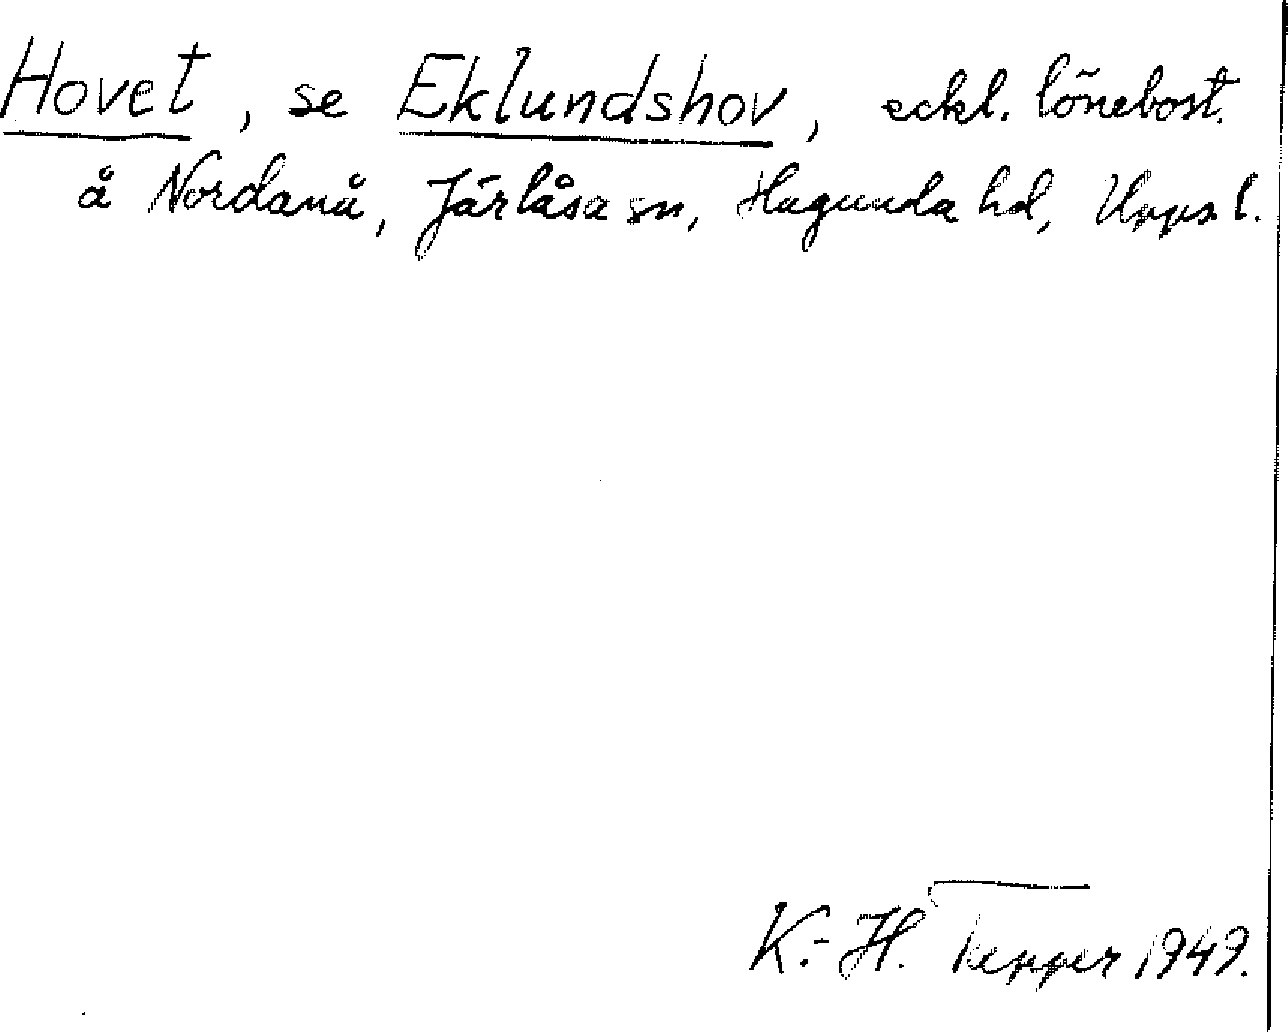 Hovet, se Eklundshov, eckl. lönebost.
å Nordanå, Järlåsa sn, Hagunda hd, Upps. l.
K.-H. Tepper 1949.